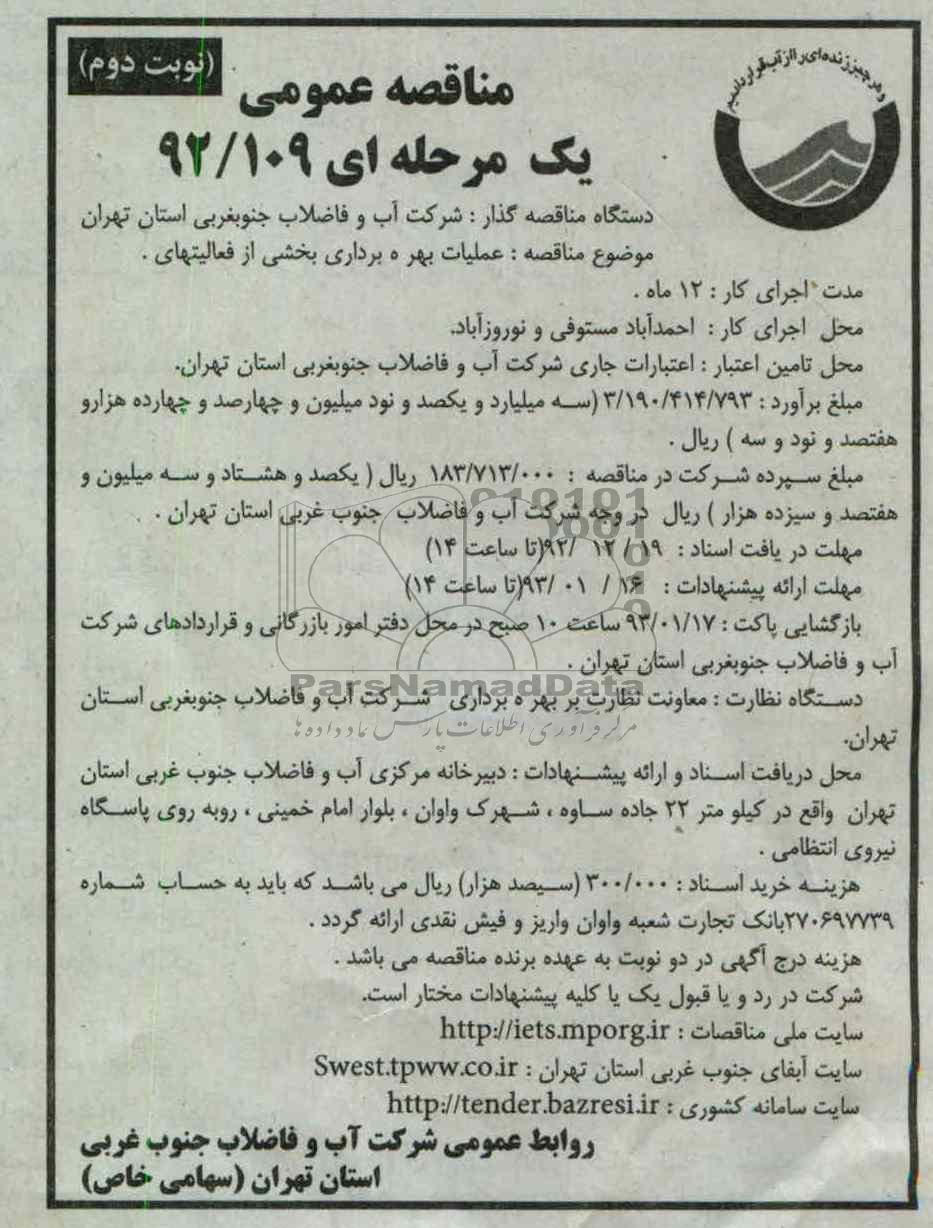 (نوبت دوم)
و هر چیز زنده‌ای را از آب قرار دادیم
مناقصه عمومی
یک مرحله ای ۹۲/۱۰۹
دستگاه مناقصه گذار : شرکت آب و فاضلاب جنوبغربی استان تهران
موضوع مناقصه : عملیات بهر ه برداری بخشی از فعالیتهای .
مدت اجرای کار : ۱۲ ماه .
محل اجرای کار : احمدآباد مستوفی و نوروزآباد.
محل تامین اعتبار : اعتبارات جاری شرکت آب و فاضلاب جنوبغربی استان تهران.
مبلغ برآورد : ۳/۱۹۰/۴۱۴/۷۹۳ (سه میلیارد و یکصد و نود میلیون و چهارصد و چهارده هزارو
هفتصد و نود و سه ) ریال .
مبلغ سپرده شرکت در مناقصه : ۱۸۳/۷۱۳/۰۰۰ ریال ( یکصد و هشتاد و سه میلیون و
هفتصد و سیزده هزار ) ریال در وجه شرکت آب و فاضلاب جنوب غربی استان تهران .
مهلت در یافت اسناد : ۱۹ / ۱۲ /۹۲(تا ساعت ۱۴)
مهلت ارائه پیشنهادات : ۱۶ / ۰۱ /۹۳(تا ساعت ۱۴)
بازگشایی پاکت : ۹۳/۰۱/۱۷ ساعت ۱۰ صبح در محل دفتر امور بازرگانی و قراردادهای شرکت
آب و فاضلاب جنوبغربی استان تهران .
ParsNamadData
دستگاه نظارت : معاونت نظارت بر بهر ه برداری شرکت آب و فاضلاب جنوبغربی استان
مرکز فرآوری اطلاعات پارس نماد داده ها
تهران.
محل دریافت اسناد و ارائه پیشنهادات : دبیرخانه مرکزی آب و فاضلاب جنوب غربی استان
تهران واقع در کیلو متر ۲۲ جاده ساوه ، شهرک واوان ، بلوار امام خمینی ، روبه روی پاسگاه
نیروی انتظامی .
هزینه خرید اسناد : ۳۰۰/۰۰۰ (سیصد هزار) ریال می باشد که باید به حساب شماره
۲۷۰۶۹۷۷۳۹بانک تجارت شعبه واوان واریز و فیش نقدی ارائه گردد .
هزینه درج آگهی در دو نوبت به عهده برنده مناقصه می باشد .
شرکت در رد و یا قبول یک یا کلیه پیشنهادات مختار است.
سایت ملی مناقصات : http://iets.mporg.ir
سایت آبفای جنوب غربی استان تهران : Swest.tpww.co.ir
سایت سامانه کشوری : http://tender.bazresi.ir
روابط عمومی شرکت آب و فاضلاب جنوب غربی
استان تهران (سهامی خاص)